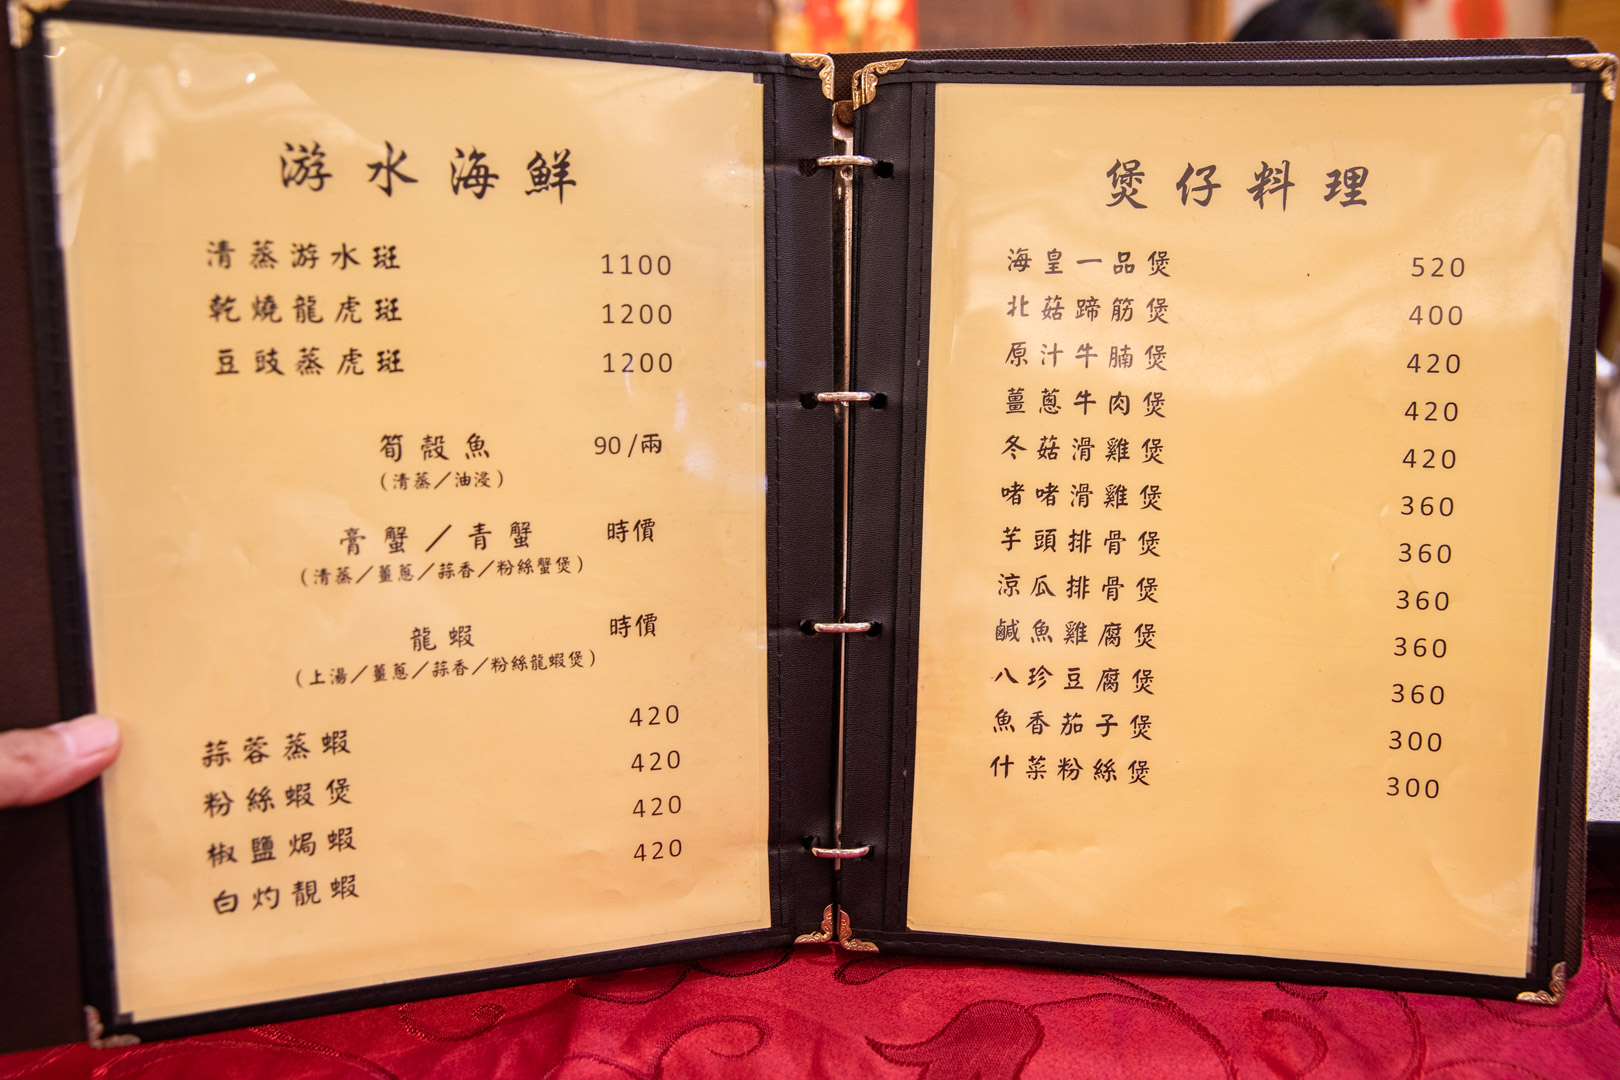 游水海鮮
清蒸游水斑 1100
乾燒龍虎斑 1200
豆豉蒸虎斑 1200
筍殼魚 90/兩
(清蒸/油浸)
膏蟹/青蟹 時價
(清蒸/薑蔥/蒜香/粉絲蟹煲)
龍蝦 時價
(上湯/薑蔥/蒜香/粉絲龍蝦煲)
蒜蓉蒸蝦 420
粉絲蝦煲 420
椒鹽焗蝦 420
白灼靚蝦 420
煲仔料理
海皇一品煲 520
北菇蹄筋煲 400
原汁牛腩煲 420
薑蔥牛肉煲 420
冬菇滑雞煲 420
啫啫滑雞煲 360
芋頭排骨煲 360
涼瓜排骨煲 360
鹹魚雞腐煲 360
八珍豆腐煲 360
魚香茄子煲 300
什菜粉絲煲 300